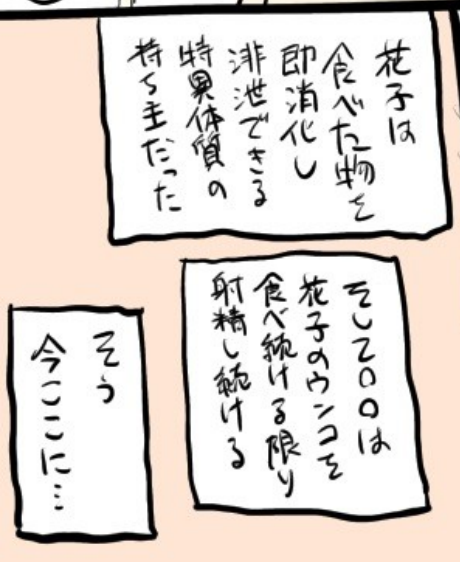 花子は
食べた物を
即消化し
排泄できる
特異体質の
持ち主だった
そして〇〇は
花子のウンコを
食べ続ける限り
射精し続ける
そう
今ここに…